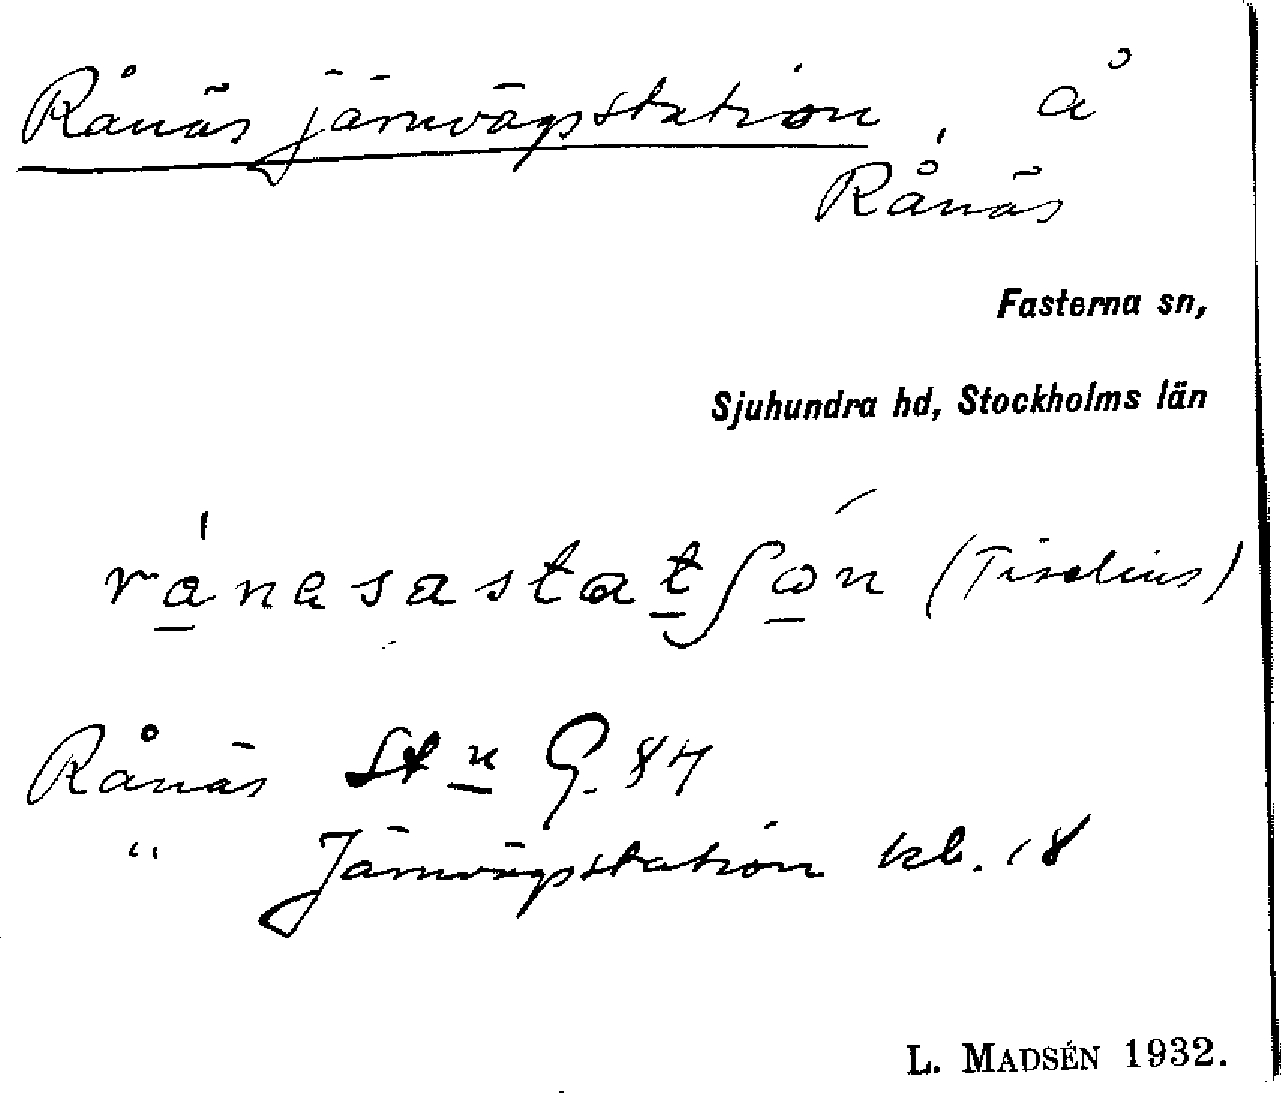 Rånäs järnvägsstation, å
Rånäs
Fasterna sn,
Sjuhundra hd, Stockholms län
rånasastatʃon (Tiselius)
Rånäs Stn G. 84
" Järnvägsstation kb. 18
L. MADSÉN 1932.